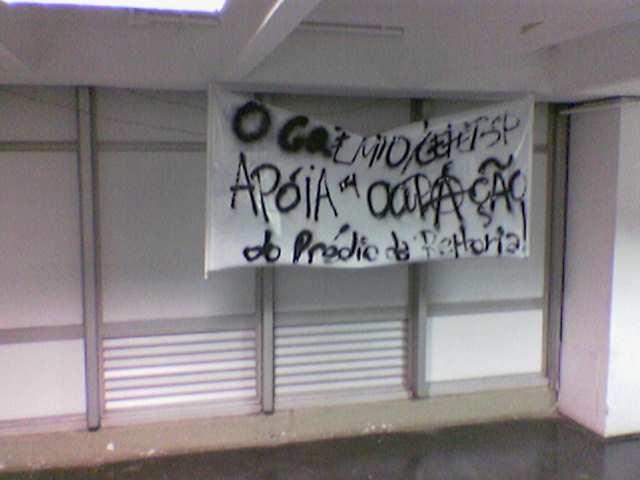 O GRÊMIO/CEFETSP
APÓIA A OCUPAÇÃO
do Prédio da Reitoria!